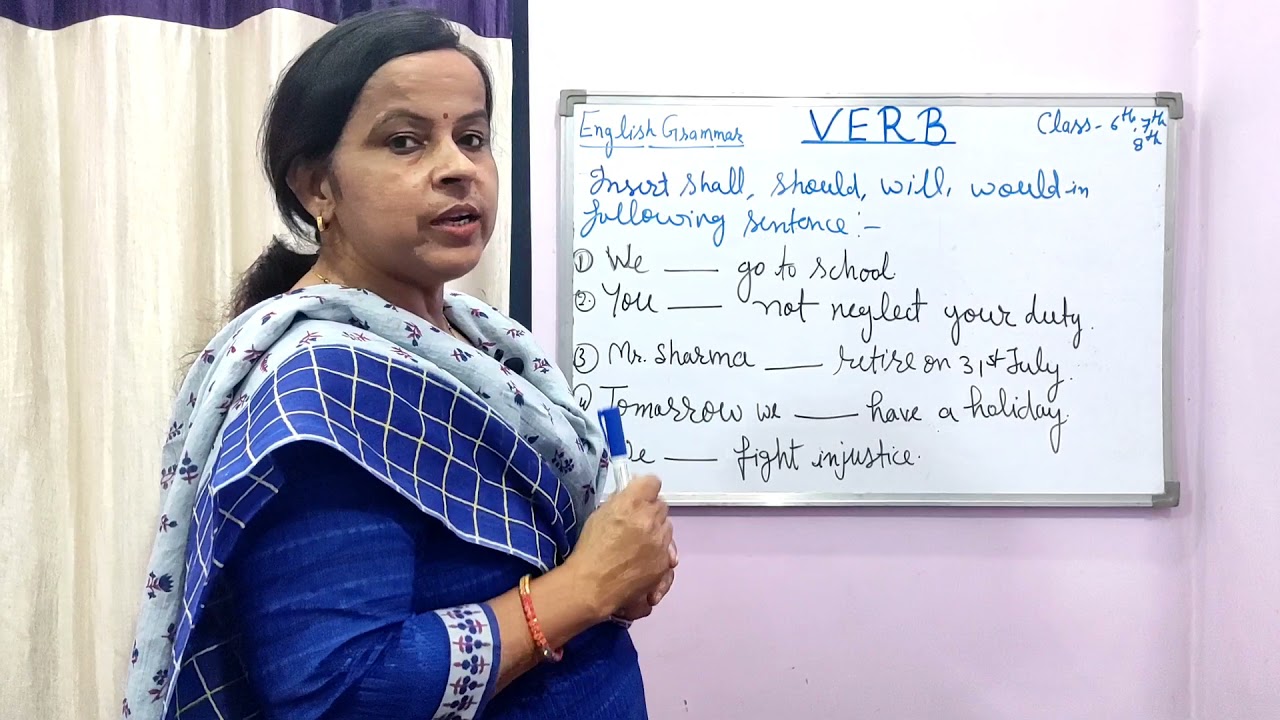 English Grammar
VERB
Class- 6th, 7th
8th
Insert shall, should, will, would in
following sentence:-
① We ___ go to school
② You ___ not neglect your duty.
③ Mr. Sharma ___ retire on 31st July.
Tomorrow we ___ have a holiday.
___ fight injustice.